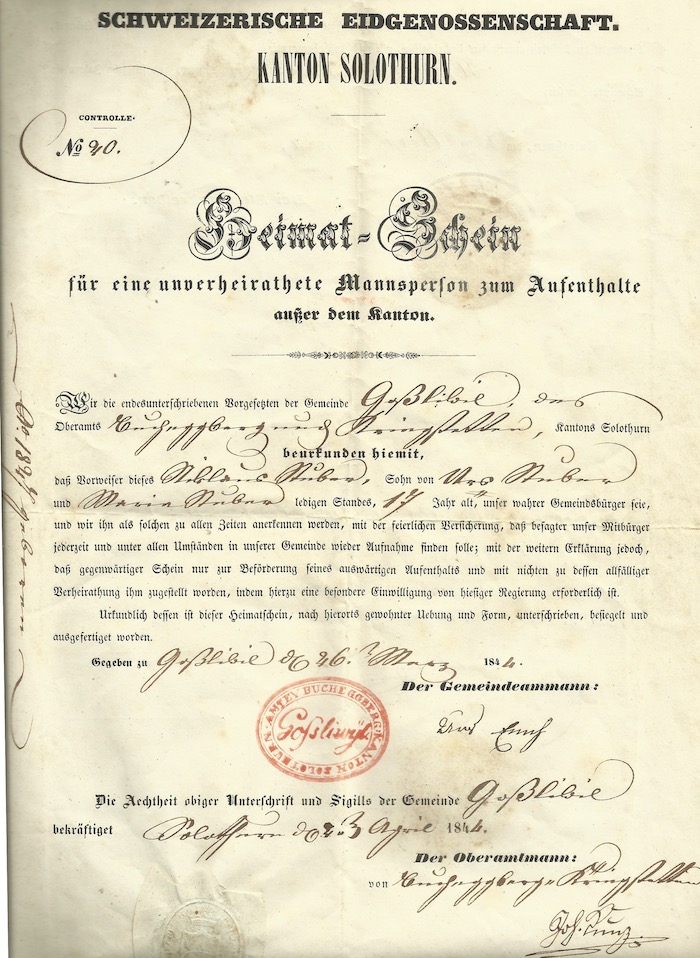 SCHWEIZERISCHE EIDGENOSSENSCHAFT.
KANTON SOLOTHURN.
CONTROLLE.
No 20.
Heimat-Schein
für eine unverheirathete Mannsperson zum Aufenthalte
außer dem Kanton.
Wir die endesunterschriebenen Vorgesetzten der Gemeinde Goßlibil, des
Oberamts Bucheggberg und Kriegstetten, Kantons Solothurn
beurkunden hiemit,
daß Vorweiser dieses Niklaus Stuber, Sohn von Urs Stuber
und Maria Stuber ledigen Standes, 17 Jahr alt, unser wahrer Gemeindsbürger seie,
und wir ihn als solchen zu allen Zeiten anerkennen werden, mit der feierlichen Versicherung, daß besagter unser Mitbürger
jederzeit und unter allen Umständen in unserer Gemeinde wieder Aufnahme finden solle; mit der weitern Erklärung jedoch,
daß gegenwärtiger Schein nur zur Beförderung seines auswärtigen Aufenthalts und mit nichten zu dessen allfälliger
Verheirathung ihm zugestellt worden, indem hierzu eine besondere Einwilligung von hiesiger Regierung erforderlich ist.
Urkundlich dessen ist dieser Heimatschein, nach hierorts gewohnter Uebung und Form, unterschrieben, besiegelt und
ausgefertiget worden.
Gegeben zu Goßlibil d 26. Merz 1844.
Der Gemeindeammann:
Urs
AMTEY BUCHEGGBERG KANTON SOLOTHURN
Gosliwyl
Die Aechtheit obiger Unterschrift und Sigills der Gemeinde Goßlibil
bekräftiget Solothurn d 23 April 1844.
Der Oberamtmann:
von Bucheggberg Kriegstetten
Joh. Kunz